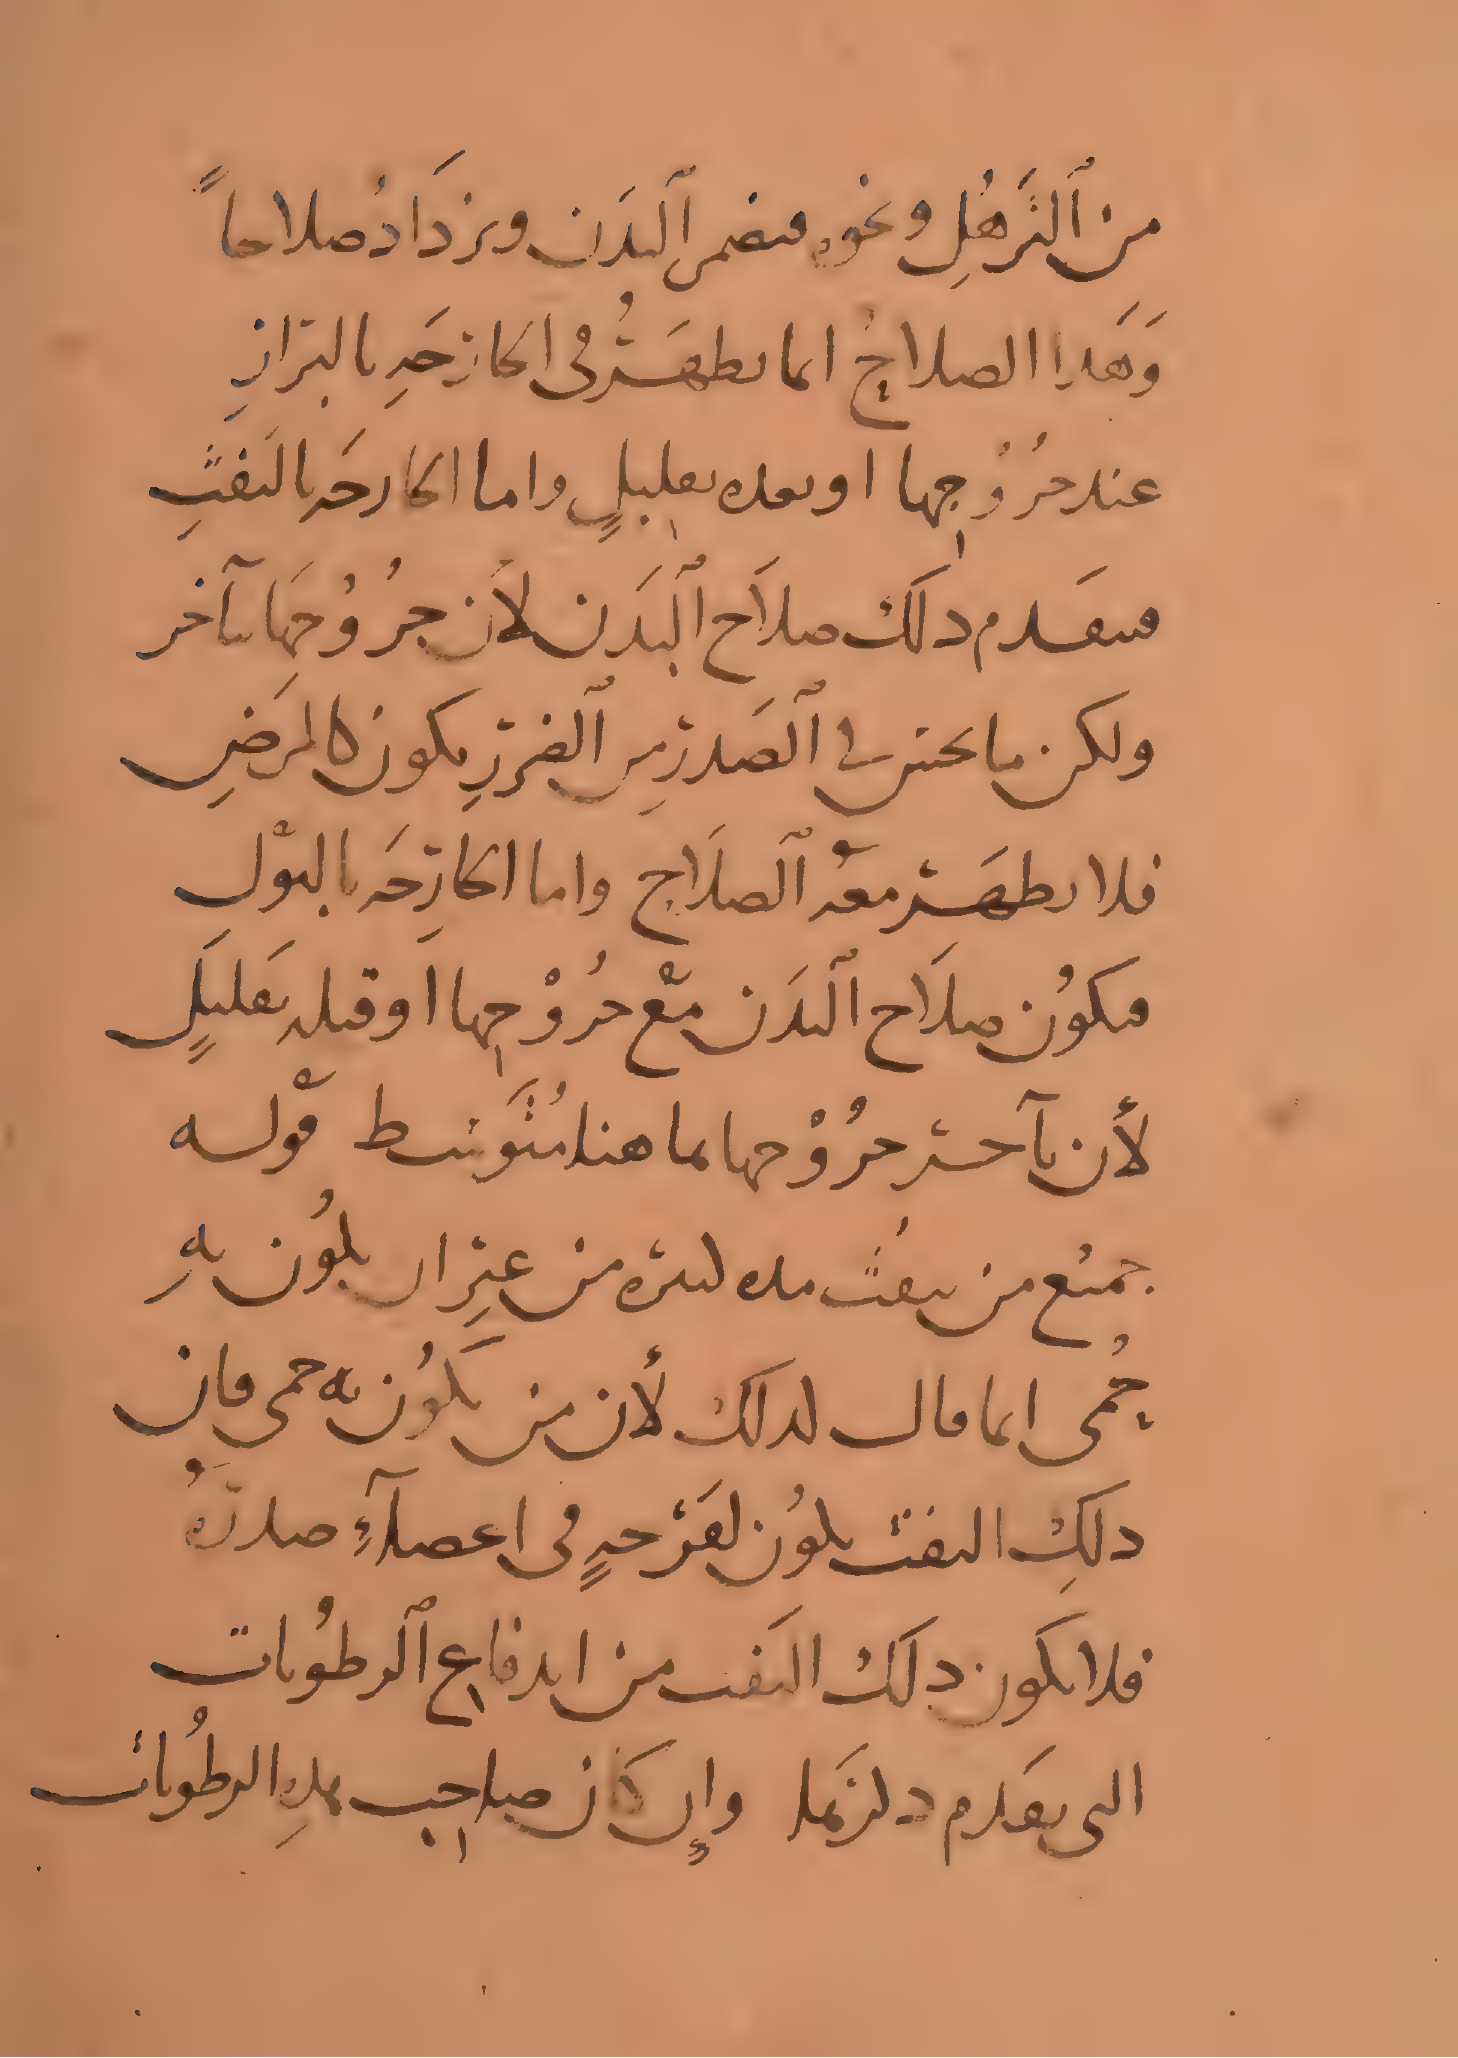 من ٱلتَّرهُّلِ ونحوه فيضمر ٱلبدَن ويزدَادُ صلاحاً
وَهَذا الصلاحُ انما يظهَرُ فى الخارجَهِ بالبرَازِ
عند خرُوُجِها او بعده بقليلٍ واما الخارجَه بالنفثِ
فيتقَدم ذلكَ صلاَح ٱلبدَن لأن خرُوُجهَا يتآخر
ولكن ما يحتبس فى ٱلصَدرِ مِن ٱلضررِ يكون كالمرَضِ
فلا يظهَر معَهُ ٱلصلَاح واما الخارِجَه بالبوْل
فيكوُن صلَاح ٱلبدَن معْ خرُوْجها اَو قبله بقَليلٍ
لأن تآخر خرُوْجها بما هنا مُتَوسط قوْلــه
جميُع من ينفث مده كثيره من غيرِ ان يكوُن بهِ
حُمى انما قال كذلكَ لأن من يكَوُن به حمى فان
ذلكِ النفث يكوُن لقَرْحهٍ فى اعضآءِ صدرُهُ
فلا يكون ذلكَ النفث من اندفاع ٱلرطوُبات
التى يقَدم ذكرَها وإن كَان صاحب هذِه الرطُوبات